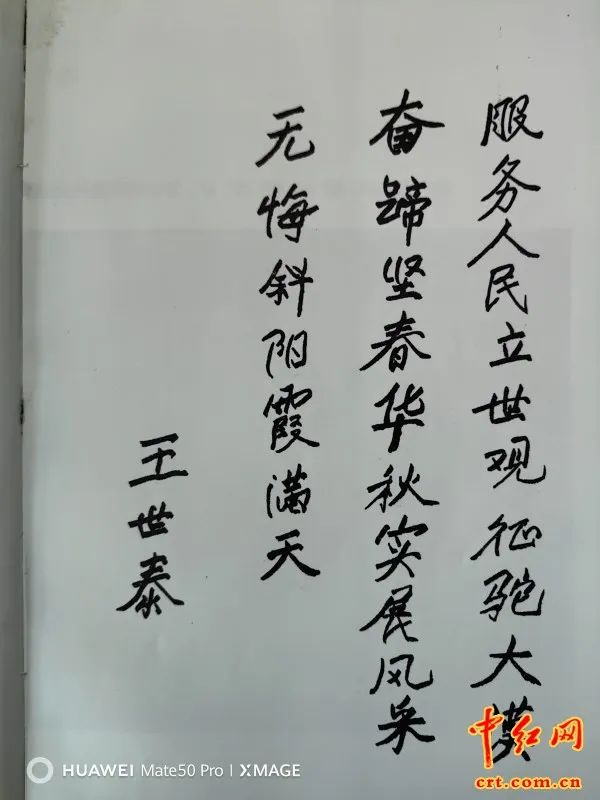 服务人民立世观征驼大漠
奋蹄坚春华秋实展风采
无悔斜阳霞满天
王世泰
中红网
crt.com.cn
HUAWEI Mate50 Pro | XMAGE